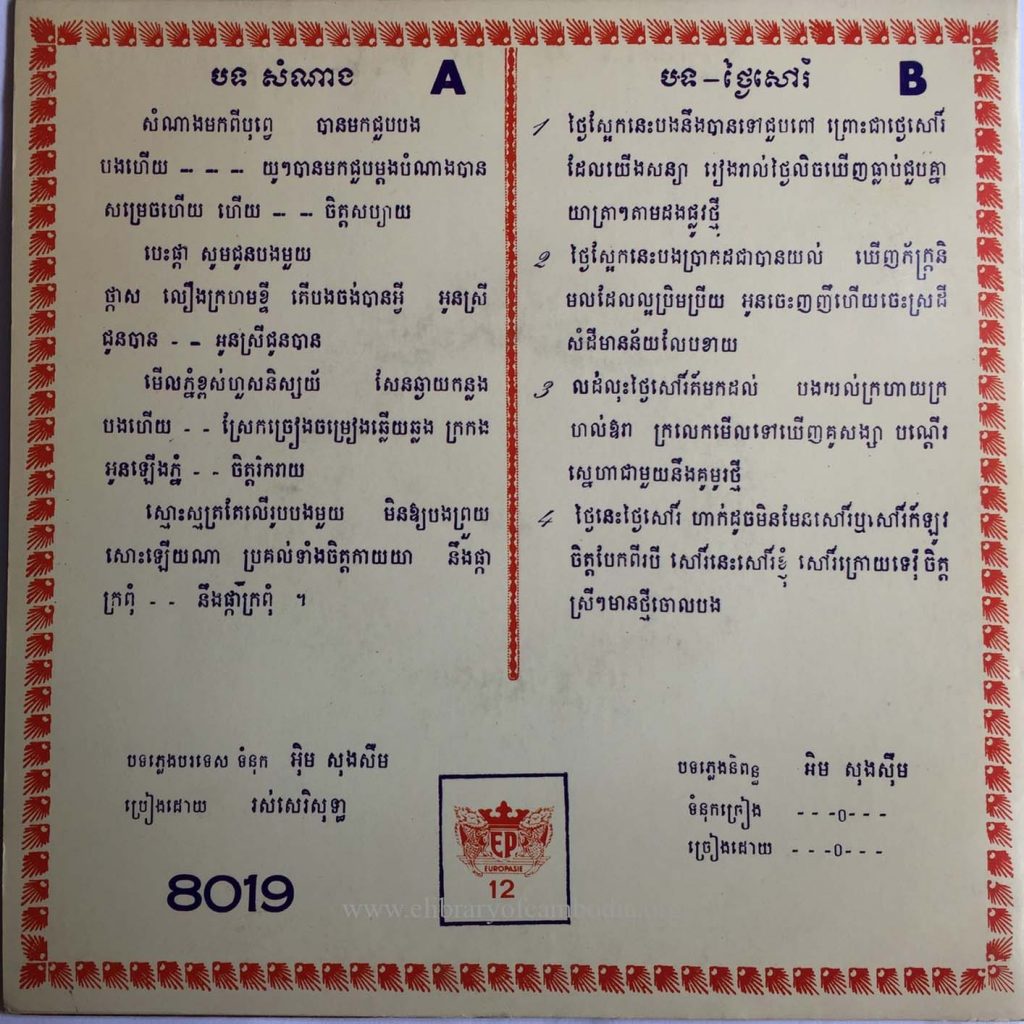 បទ សំណាង A
សំណាងមកពីបុព្វេ បានមកជួបបង
បងហើយ -- -- -- យូៗបានមកជួបម្ដងបំណាងបាន
សម្រេចហើយ ហើយ -- -- ចិត្តសប្បាយ
បេះផ្កា សូមជូនបងមួយ
ថ្កាស លឿងក្រហមខ្ចី តើបងចង់បានអ្វី អូនស្រី
ជូនបាន - - អូនស្រីជូនបាន
មើលភ្នំខ្ពស់ហួសនិស្ស័យ សែនឆ្ងាយកន្លង
បងហើយ - - ស្រែកច្រៀងចម្រៀងឆ្លើយឆ្លង ក្រកង
អូនឡើងភ្នំ - - ចិត្តរិករាយ
ស្មោះស្មគ្រតែលើរូបបងមួយ មិនឱ្យបងព្រួយ
សោះឡើយណា ប្រគល់ទាំងចិត្តកាយយា នឹងផ្កា
ក្រពុំ - - នឹងផ្កាក្រពុំ ។
បទ - ថ្ងៃសៅរ៍ B
1 ថ្ងៃស្អែកនេះបងនឹងបានទៅជួបពៅ ព្រោះជាថ្ងេសៅរ៍
ដែលយើងសន្យា រៀងរាល់ថ្ងៃលិចឃើញធ្លាប់ជួបគ្នា
យាត្រាៗតាមដងផ្លូវថ្មី
2 ថ្ងៃស្អែកនេះបងប្រាកដជាបានយល់ ឃើញភ័ក្ត្រនិ
មលដែលល្អប្រិមប្រីយ អូនចេះញញឹហើយចេះស្រដី
សំដីមានន័យលែបខាយ
3 លដំលុះថ្ងៃសៅរ៍ត័មកដល់ បងយល់ក្រហាយក្រ
ហល់ឱរា ក្រលេកមើលទៅឃើញគូសង្សា បណ្ដើរ
ស្នេហាជាមួយនឹងគូមូរថ្មី
4 ថ្ងៃនេះថ្ងៃសៅរ៍ ហាក់ដូចមិនមែនសៅរ៍ឬសៅរ៍ក័ឡូវ
ចិត្តបែកពីរបី សៅរ៍នេះសៅរ៍ខ្ញុំ សៅរ៍ក្រោយទេវ៉ី ចិត្ត
ស្រីៗមានថ្មីចោលបង
បទភ្លេងបរទេស ទំនុក អ៊ិម សុងសឺម
ច្រៀងដោយ រស់សេរិសុទ្ឋា
8019
EP
EUROPASIE
12
បទភ្លេងនិពន្ធ អិម សុងស៊ឹម
ទំនុកច្រៀង - - -0- - -
ច្រៀងដោយ - - -0- - -
www.elibraryofcambodia.org